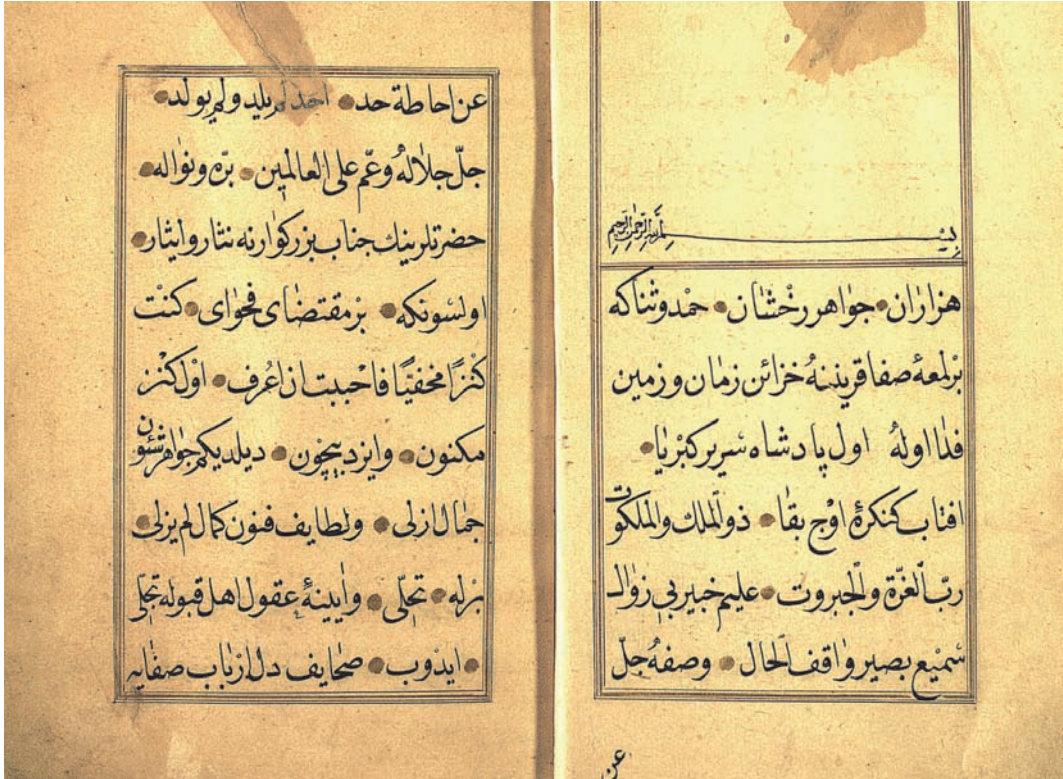 بسم الله الرحمن الرحيم
هزاران • جواهر رخشان • حمد و ثنا كه
بر لمعهٔ صفا قرينه خزائن زمان و زمين
فدا اوله اول پادشاه سرير كبريا •
افتاب كنكرهٔ اوج بقا • ذو الملك والملكوت
ربّ العزّة والجبروت • عليم خبير بى زوال
سميع بصير واقف الحال • وصفهُ جلّ
عن
عن احاطة حد • احد لم يلد ولم يولد •
جلّ جلاله وعمّ على العالمين • برّه ونواله •
حضرتلرينك جناب بزركوارنه نثار وايثار •
اولسونكه • بر مقتضاى فحواى • كنت
كنزًا مخفيًّا فاحببت ان اعرف • اول كنز
مكنون • وايزد بيچون • ديلديكم جواهر شئون
جمال ازلى • ولطايف فنون كمال لم يزلى •
برله • تجلّى • وايينهٔ عقول اهل قبوله تجلى
• ايدوب • صحايف دل ارباب صفايه